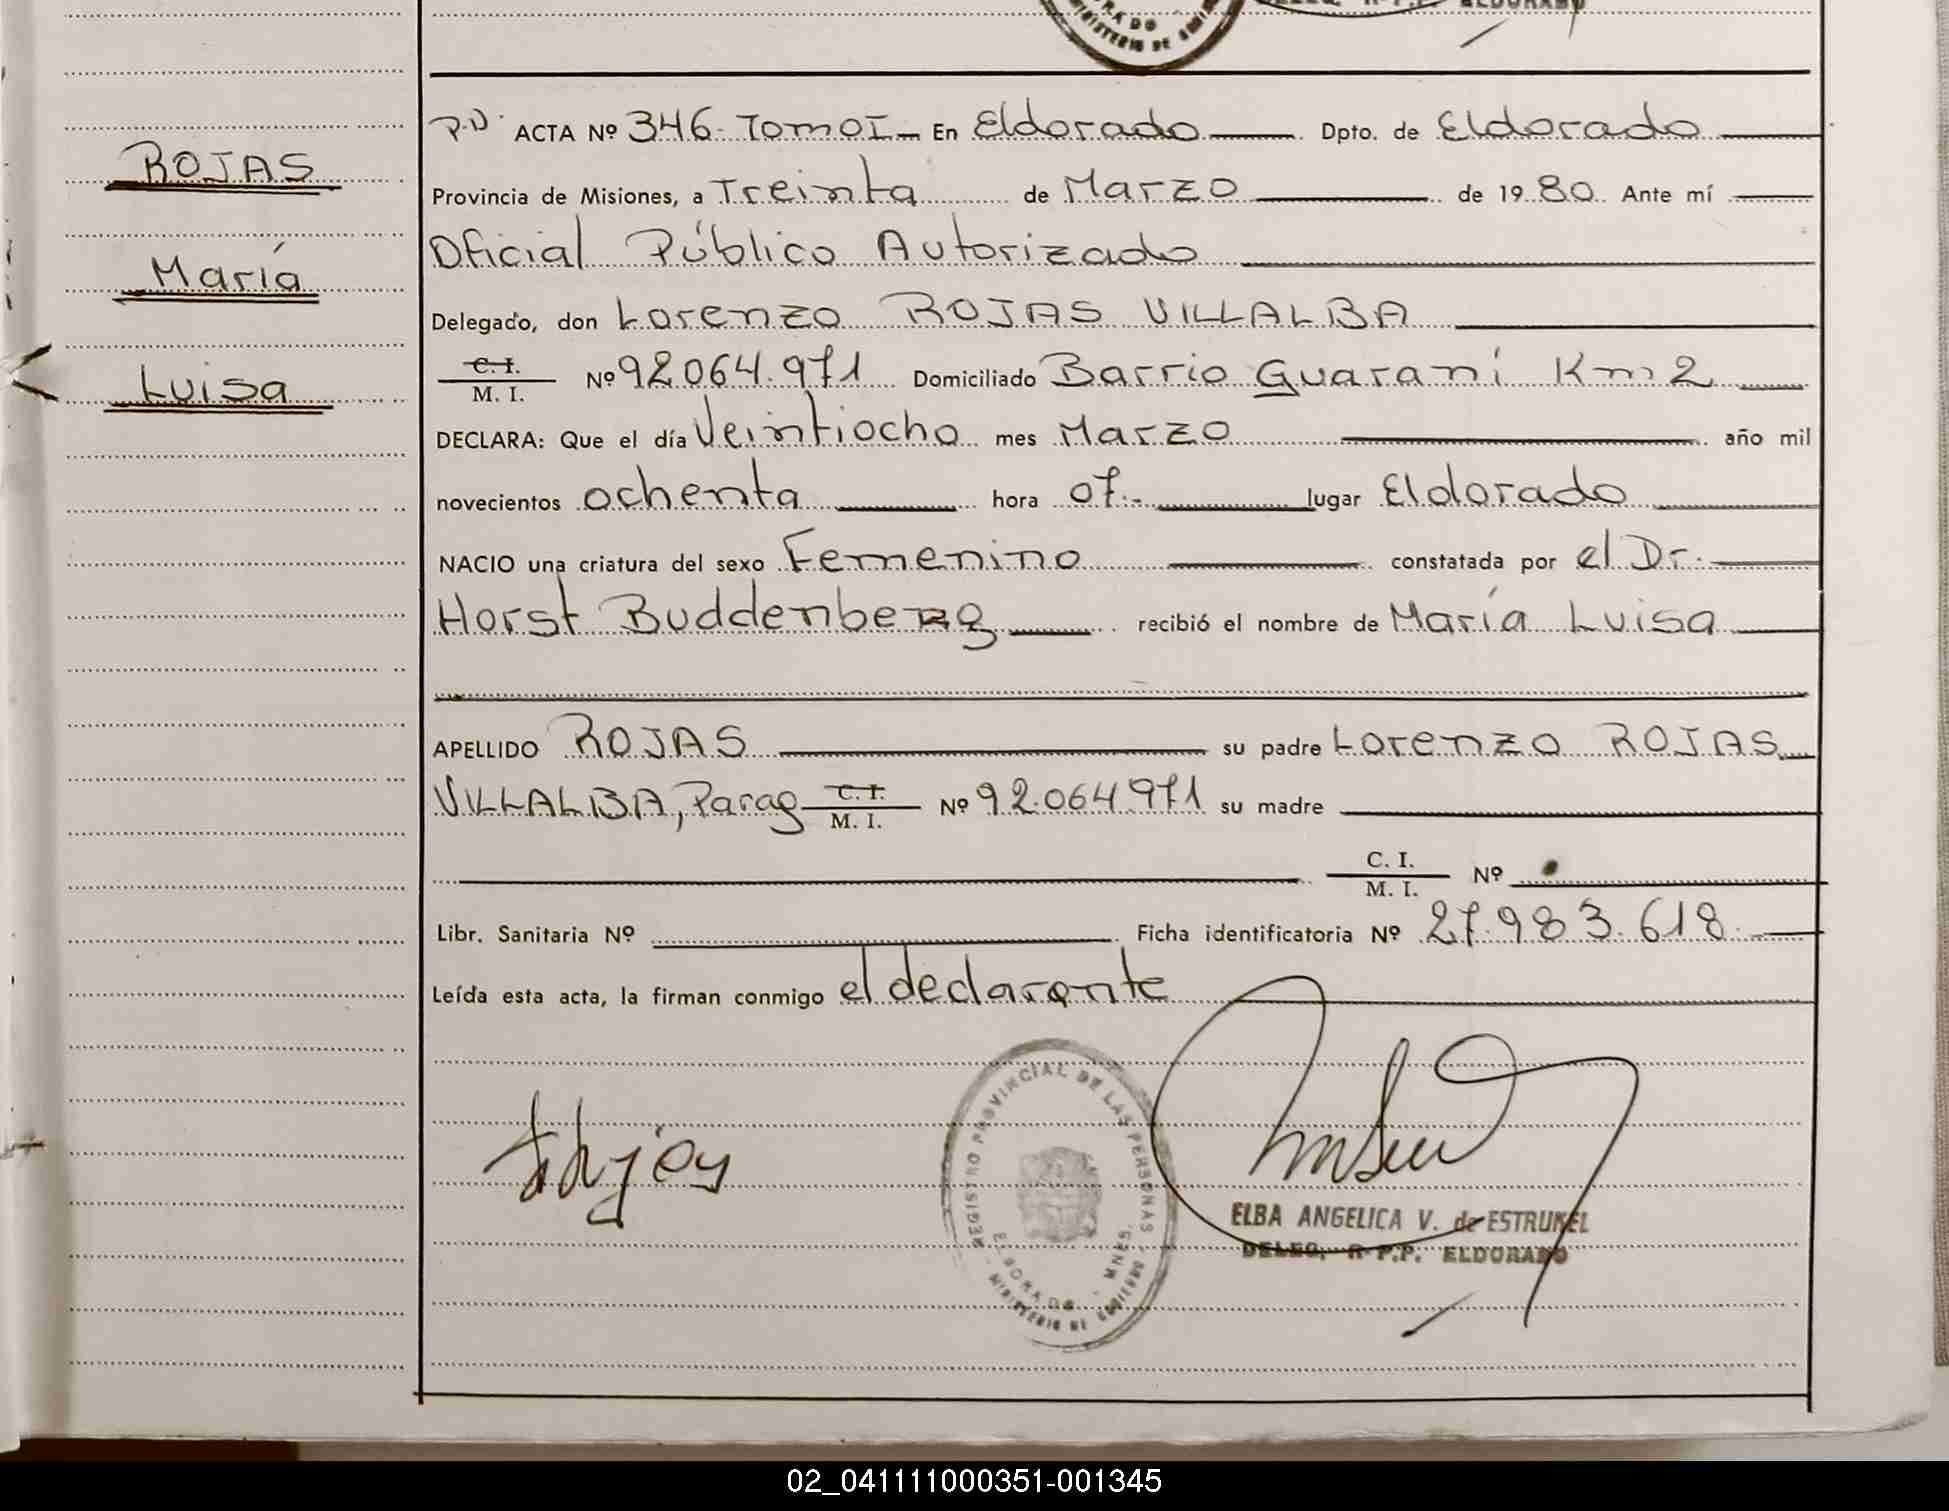 ROJAS
María
Luisa
P.D. ACTA Nº 346. Tomo I En Eldorado Dpto. de Eldorado
Provincia de Misiones, a Treinta de Marzo de 1980. Ante mí
Oficial Público Autorizado
Delegado, don Lorenzo ROJAS VILLALBA
C. I.
M. I. Nº 92.064.971 Domiciliado Barrio Guaraní Km 2
DECLARA: Que el día Veintiocho mes Marzo año mil
novecientos ochenta hora 07.- lugar Eldorado
NACIO una criatura del sexo Femenino constatada por el Dr.
Horst Buddenberg recibió el nombre de María Luisa
APELLIDO ROJAS su padre Lorenzo ROJAS
VILLALBA, Parag C. I.
M. I. Nº 92.064.971 su madre
C. I.
M. I. Nº
Libr. Sanitaria Nº Ficha identificatoria Nº 27.983.618.
Leída esta acta, la firman conmigo el declarante
REGISTRO PROVINCIAL DE LAS PERSONAS
ELDORADO - MNES.
MINISTERIO DE GOBIERNO
ELBA ANGELICA V. de ESTRUKEL
DELEG. R.P.P. ELDORADO
02_041111000351-001345